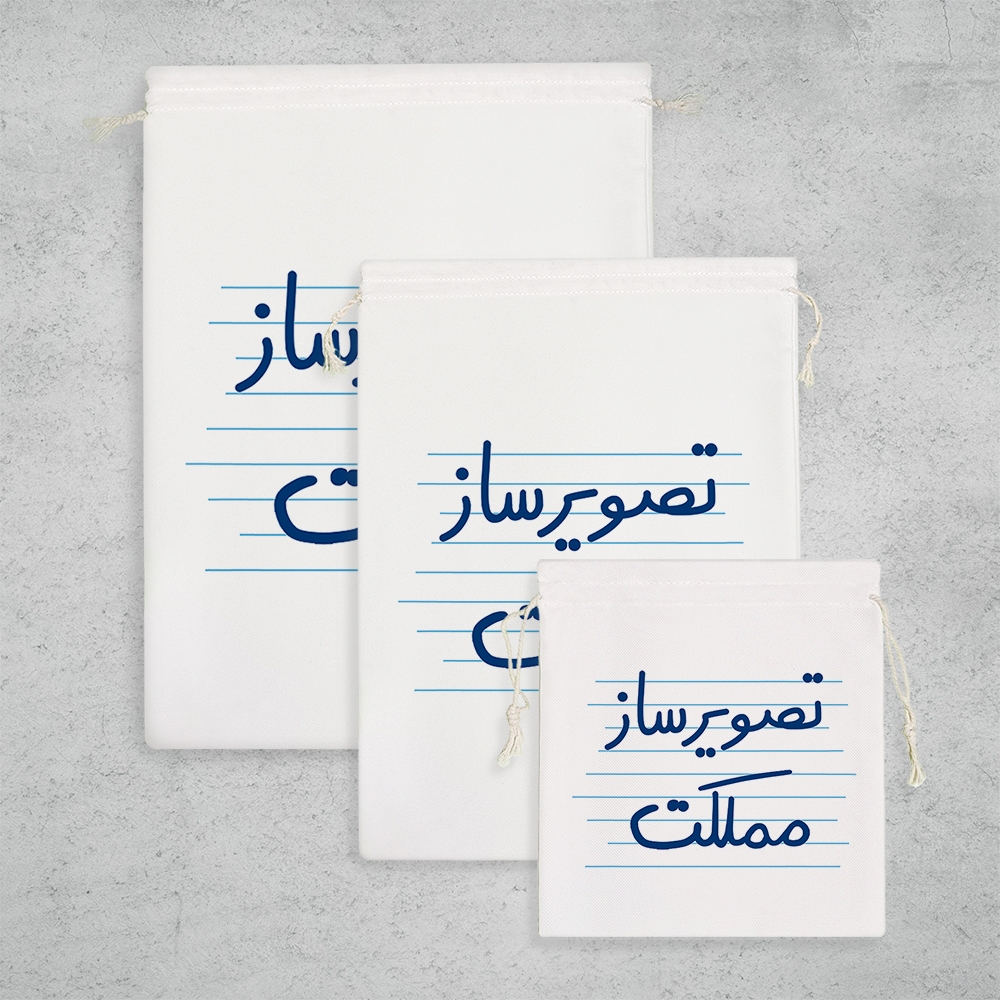 تصویرساز
تصویرساز
مملکت